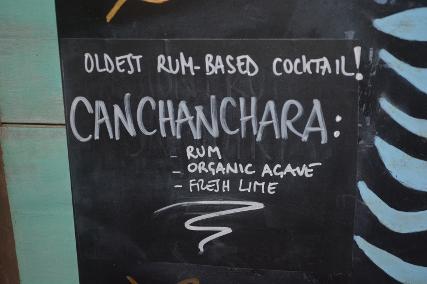 OLDEST RUM-BASED COCKTAIL!
CANCHANCHARA:
- RUM
- ORGANIC AGAVE
- FRESH LIME